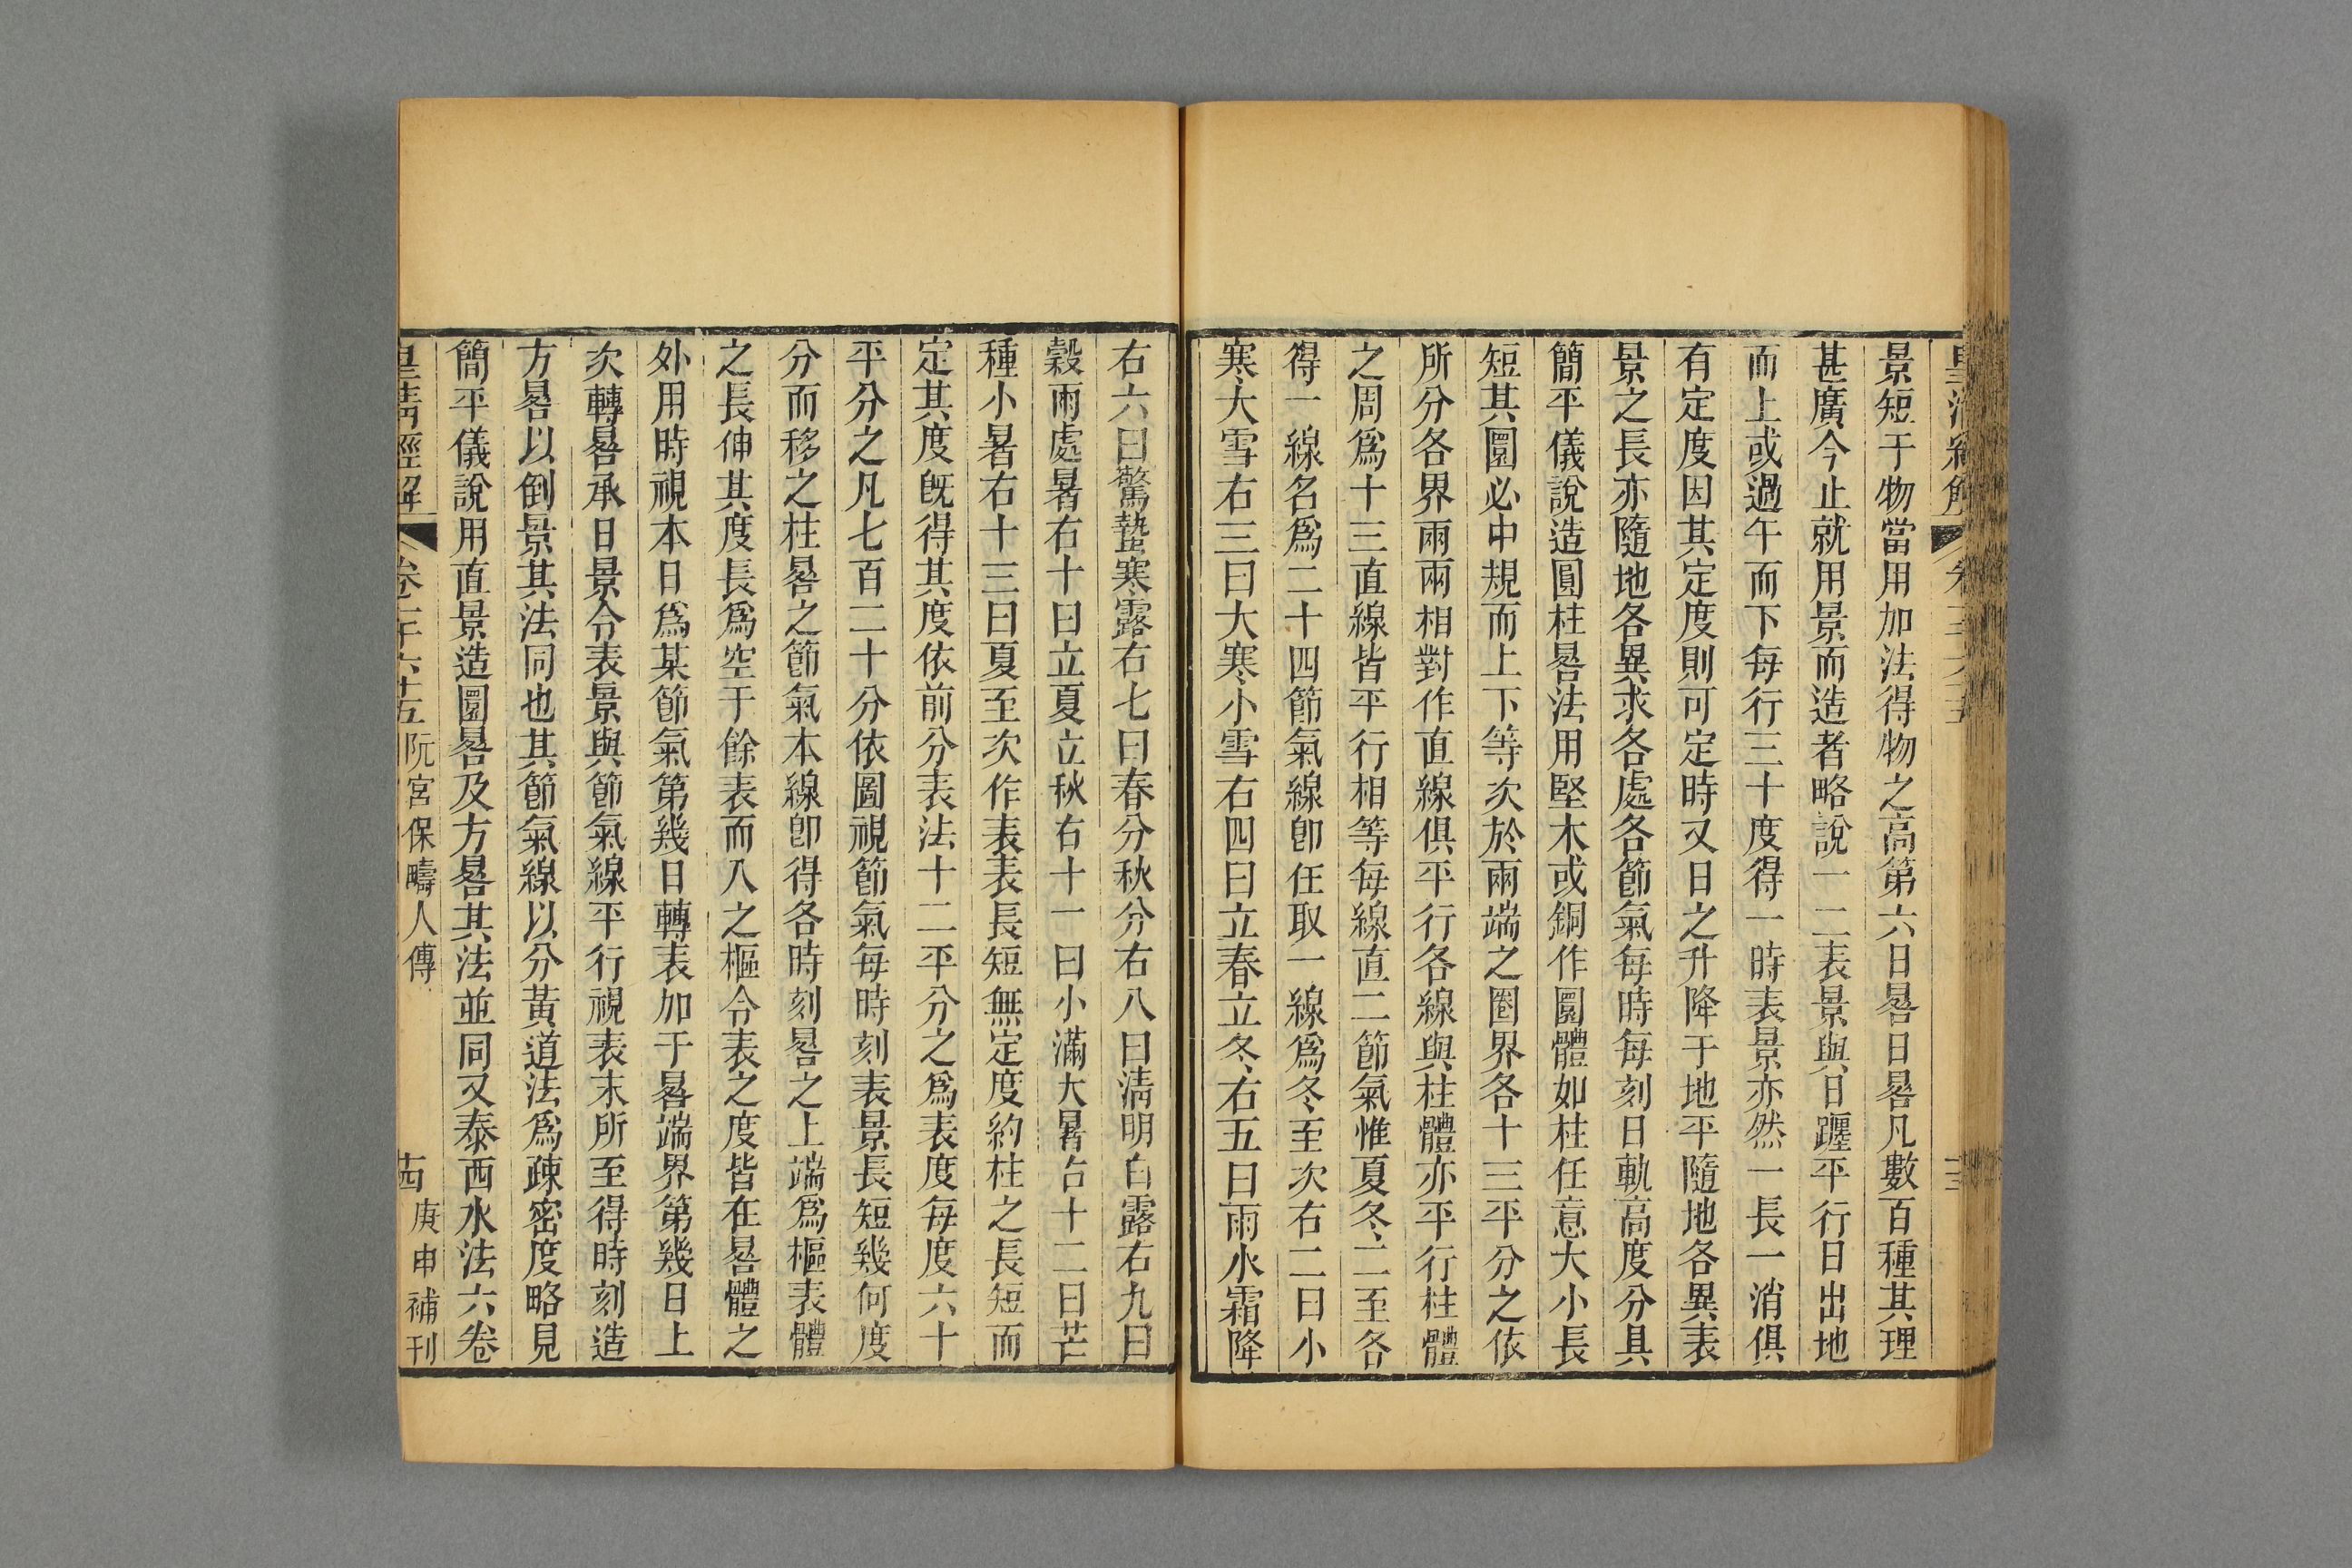 景短于物當用加法得物之高第六日晷日晷凡數百種其理
甚廣今止就用景而造者略說一二表景與日躔平行日出地
而上或過午而下每行三十度得一時表景亦然一長一消俱
有定度因其定度則可定時又日之升降于地平隨地各異表
景之長亦隨地各異求各處各節氣每時每刻日軌高度分具
簡平儀說造圓柱晷法用堅木或銅作圜體如柱任意大小長
短其圜必中規而上下等次於兩端之圈界各十三平分之依
所分各界兩兩相對作直線俱平行各線與柱體亦平行柱體
之周爲十三直線皆平行相等每線直二節氣惟夏冬二至各
得一線名爲二十四節氣線卽任取一線爲冬至次右二曰小
寒大雪右三曰大寒小雪右四曰立春立冬右五曰雨水霜降
右六曰驚蟄寒露右七曰春分秋分右八曰清明白露右九曰
穀雨處暑右十曰立夏立秋右十一曰小滿大暑右十二曰芒
種小暑右十三曰夏至次作表表長短無定度約柱之長短而
定其度旣得其度依前分表法十二平分之爲表度每度六十
平分之凡七百二十分依圖視節氣每時刻表景長短幾何度
分而移之柱晷之節氣本線卽得各時刻晷之上端爲樞表體
之長伸其度長爲空于餘表而入之樞令表之度皆在晷體之
外用時視本日爲某節氣第幾日轉表加于晷端界第幾日上
次轉晷承日景令表景與節氣線平行視表末所至得時刻造
方晷以倒景其法同也其節氣線以分黃道法爲疎密度略見
簡平儀說用直景造圜晷及方晷其法並同又泰西水法六卷
皇清經解 卷一千六十五 阮宮保疇人傳 十四 庚申補刊